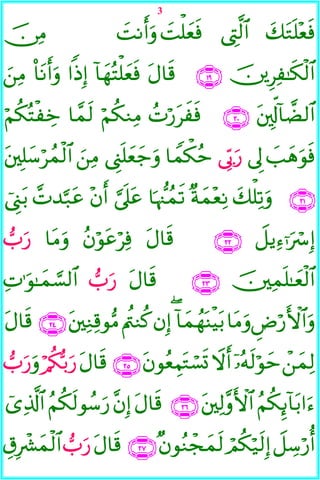 3
فَعْلَتَكَ ٱلَّتِى فَعَلْتَ وَأَنتَ مِنَ
ٱلْكَـٰفِرِينَ ١٩ قَالَ فَعَلْتُهَآ إِذًا وَأَنَا۠ مِنَ
ٱلضَّآلِّينَ ٢٠ فَفَرَرْتُ مِنكُمْ لَمَّا خِفْتُكُمْ
فَوَهَبَ لِى رَبِّى حُكْمًا وَجَعَلَنِى مِنَ ٱلْمُرْسَلِينَ
٢١ وَتِلْكَ نِعْمَةٌ تَمُنُّهَا عَلَىَّ أَنْ عَبَّدتَّ بَنِىٓ
إِسْرَٰٓءِيلَ ٢٢ قَالَ فِرْعَوْنُ وَمَا رَبُّ
ٱلْعَـٰلَمِينَ ٢٣ قَالَ رَبُّ ٱلسَّمَـٰوَٰتِ
وَٱلْأَرْضِ وَمَا بَيْنَهُمَآ ۖ إِن كُنتُم مُّوقِنِينَ ٢٤ قَالَ
لِمَنْ حَوْلَهُۥٓ أَلَا تَسْتَمِعُونَ ٢٥ قَالَ رَبُّكُمْ وَرَبُّ
ءَابَآئِكُمُ ٱلْأَوَّلِينَ ٢٦ قَالَ إِنَّ رَسُولَكُمُ ٱلَّذِىٓ
أُرْسِلَ إِلَيْكُمْ لَمَجْنُونٌ ٢٧ قَالَ رَبُّ ٱلْمَشْرِقِ